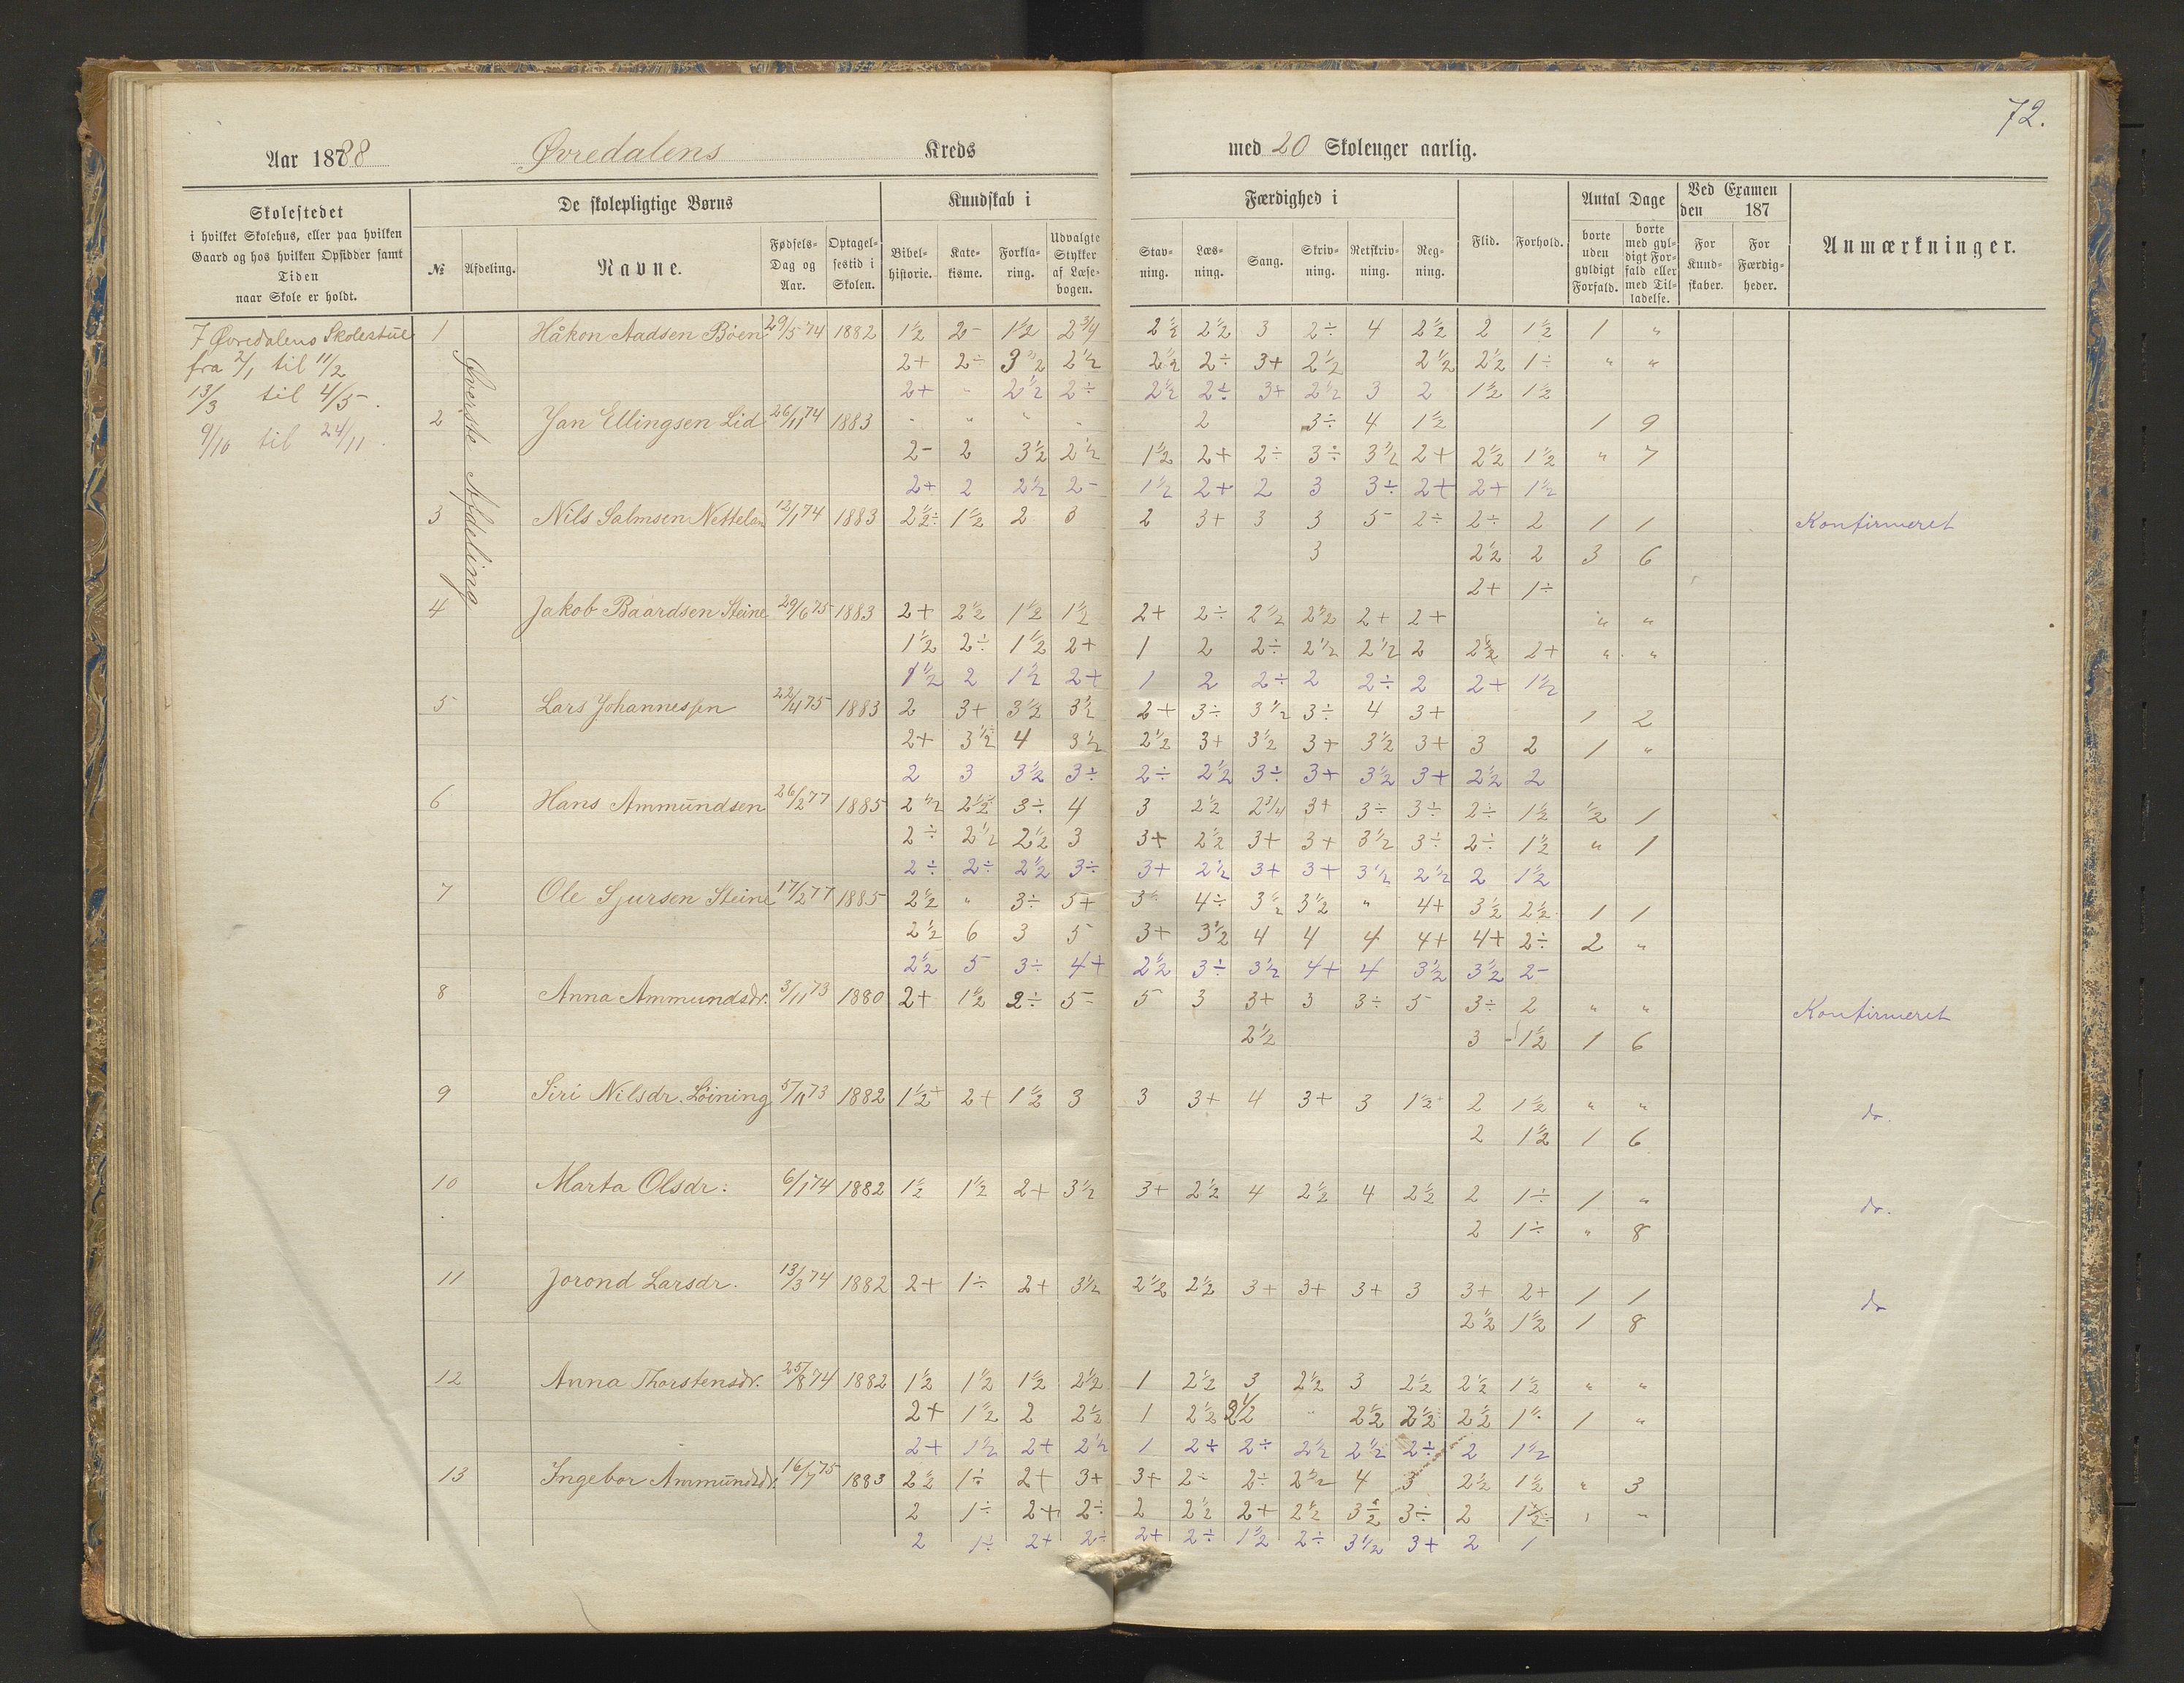 72.
Aar 18788 Øvredalens Kreds med 20 Skoleuger aarlig.
Skolestedet
i hvilket Skolehus, eller paa hvilken
Gaard og hos hvilken Opsidder samt
Tiden
naar Skole er holdt.
De skolepligtige Børns
№ Afdeling. Navne. Fødsels-Dag og Aar. Optagelsestid i Skolen.
Kundskab i
Bibelhistorie. Katekisme. Forklaring. Udvalgte Stykker af Læsebogen.
Færdighed i
Stavning. Læsning. Sang. Skrivning. Retskrivning. Regning.
Flid. Forhold.
Antal Dage
borte uden gyldigt Forfald. borte med gyldigt Forfald eller med Tilladelse.
Ved Examen den 187
For Kundskaber. For Færdigheder.
Anmærkninger.
I Øvredalens Skolestue
fra 2/1 til 11/2
13/3 til 4/5.
9/10 til 24/11.
Øverste Afdeling
1 Håkon Aadsen Böen 29/5 74 1882 1½ 2- 1½ 2¾ 2½ 2½ 3 2÷ 4 2½ 2 1½ 1 "
2+ 2÷ 3½ 2½ 2½ 2÷ 3+ 2½ 2½ 2½ 1÷ " "
2+ " 2½ 2÷ 2½ 2÷ 3+ 2½ 3 2 1½ 1½
2 Jan Ellingsen Lid 26/11 74 1883 " " " " 2 3÷ 4 1½ 1 9
2- 2 3½ 2½ 1½ 2+ 2÷ 3÷ 3½ 2+ 2½ 1½ " 7
2+ 2 2½ 2- 1½ 2+ 2 3 3÷ 2+ 2+ 1½
3 Nils Salmsen Nettelan 12/1 74 1883 2½÷ 1½ 2 3 2 3+ 3 3 5- 2÷ 2÷ 2 1 1 Konfirmeret
3 2½ 2 3 6
2+ 1÷
4 Jakob Baardsen Steine 29/6 75 1883 2+ 2½ 1½ 1½ 2+ 2÷ 2½ 2½ 2+ 2+ " "
1½ 2÷ 1½ 2+ 1 2 2÷ 2½ 2½ 2 2½ 2+ " "
1½ 2 1½ 2+ 1 2 2÷ 2 2÷ 2 2+ 1½
5 Lars Johannessen 22/4 75 1883 2 3+ 3½ 3½ 2+ 3÷ 3½ 3÷ 4 3+ 1 2
2+ 3½ 4 3½ 2½ 3+ 3½ 3+ 3½ 3+ 3 2 1 "
2 3 3½ 3÷ 2÷ 2½ 3÷ 3+ 3½ 3+ 2½ 2
6 Hans Ammundsen 26/2 77 1885 2½ 2½ 3÷ 4 3 2½ 2¾ 3+ 3÷ 3÷ 2÷ 1½ ½ 1
2÷ 2½ 2½ 3 3+ 2½ 3+ 3+ 3½ 3÷ 2÷ 1½ " 1
2÷ 2÷ 2½ 3÷ 3+ 2½ 3+ 3+ 3½ 2½ 2 1½
7 Ole Sjursen Steine 17/2 77 1885 2½ " 3÷ 5+ 3÷ 4÷ 3½ 3½ " 4+ 3½ 2½ 1 1
2½ 6 3 5 3+ 3½ 4 4 4 4+ 4+ 2÷ 2 "
2½ 5 3÷ 4+ 2½ 3÷ 3½ 4+ 4 3½ 3½ 2-
8 Anna Ammundsdr. 3/11 73 1880 2+ 1½ 2÷ 5÷ 5 3 3+ 3 3÷ 5 3÷ 2 " " Konfirmeret
2½ 3 1½ 1 6
9 Siri Nilsdr. Löining 5/11 73 1882 1½+ 2+ 1½ 3 3 3+ 4 3+ 3 1½+ 2 1½ " " do.
2 1½ 1 6
10 Marta Olsdr: 6/1 74 1882 1½ 1½ 2+ 3½ 3+ 2½ 4 2½ 4 2½ 2 1÷ 1 " do.
2 1÷ " 8
11 Jorond Larsdr. 13/3 74 1882 2+ 1÷ 2+ 3½ 2½ 2½ 3+ 3+ 3+ 3 3+ 2+ 1 1 do
2½ 1½ 1 8
12 Anna Thorstensdr. 25/8 74 1882 1½ 1½ 1½ 2½ 1 2½ 3 2½ 3 2½ 2½ 1½ " "
2+ 1½ 2 2½ 1 2½ 2½ " 2½ 2½ 2½ 1÷ 1 "
2+ 1½ 2+ 2½ 1 2+ 2÷ 2½ 2½ 2÷ 2 1½
13 Ingebor Ammundsdr. 16/7 75 1883 2½ 1÷ 2+ 3+ 3+ 2÷ 2÷ 2½ 4 3 2½ 1½ " 3
2 1÷ 2+ 2÷ 2 2½ 2+ 2½ 3½ 3÷ 2 1½ " "
2 1÷ 2+ 2÷ 2+ 2÷ 1½ 2÷ 3½ 3+ 2 1